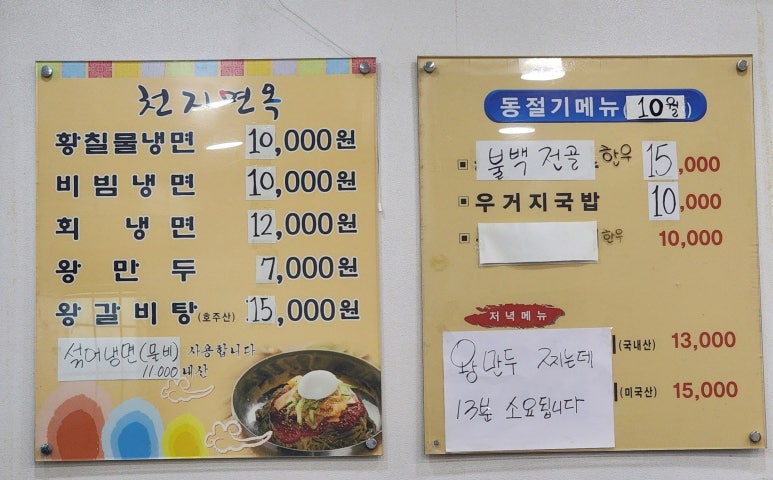 천지면옥
황칠물냉면 10,000원
비빔냉면 10,000원
회냉면 12,000원
왕만두 7,000원
왕갈비탕(호주산) 15,000원
섞어냉면(물비)
11.000
동절기메뉴(10월)
불백전골 한우 15,000
우거지국밥 10,000
한우 10,000
저녁메뉴
(국내산) 13,000
(미국산) 15,000
왕만두 찌는데
13분 소요됩니다